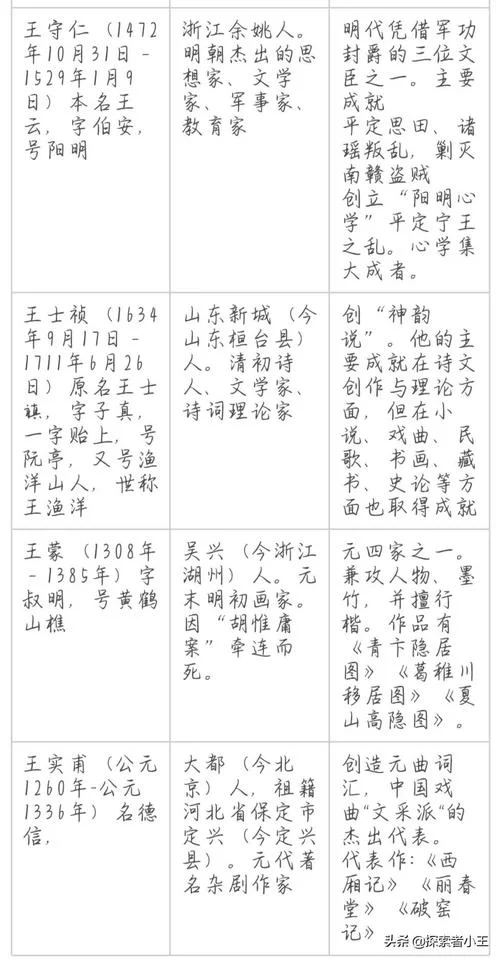 王守仁（1472
年10月31日-
1529年1月9
日）本名王
云，字伯安，
号阳明
浙江余姚人。
明朝杰出的思
想家、文学
家、军事家、
教育家
明代凭借军功
封爵的三位文
臣之一。主要
成就
平定思田、诸
瑶叛乱，剿灭
南赣盗贼
创立“阳明心
学”平定宁王
之乱。心学集
大成者。
王士祯（1634
年9月17日-
1711年6月26
日）原名王士
禛，字子真，
一字贻上，号
阮亭，又号渔
洋山人，世称
王渔洋
山东新城（今
山东桓台县）
人。清初诗
人、文学家、
诗词理论家
创“神韵
说”。他的主
要成就在诗文
创作与理论方
面，但在小
说、戏曲、民
歌、书画、藏
书、史论等方
面也取得成就
王蒙（1308年
-1385年）字
叔明，号黄鹤
山樵
吴兴（今浙江
湖州）人。元
末明初画家。
因“胡惟庸
案”牵连而
死。
元四家之一。
兼攻人物、墨
竹，并擅行
楷。作品有
《青卞隐居
图》《葛稚川
移居图》《夏
山高隐图》。
王实甫（公元
1260年-公元
1336年）名德
信，
大都（今北
京）人，祖籍
河北省保定市
定兴（今定兴
县）。元代著
名杂剧作家
创造元曲词
汇，中国戏
曲“文采派“的
杰出代表。
代表作：《西
厢记》《丽春
堂》《破窑
记》
头条 @探索者小王